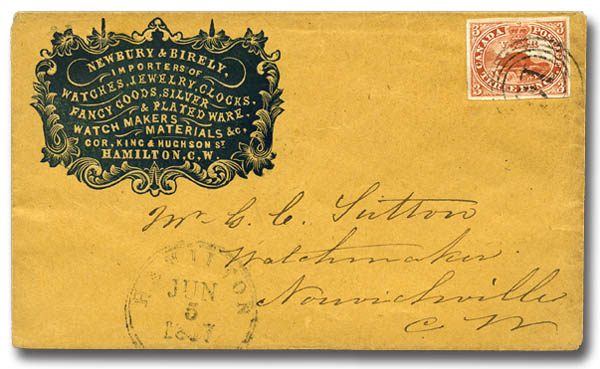 NEWBURY & BIRELY,
IMPORTERS OF
WATCHES, JEWELRY, CLOCKS,
FANCY GOODS, SILVER
& PLATED WARE,
WATCH MAKERS
MATERIALS &c,
COR, KING & HUGHSON ST
HAMILTON, C, W.
3 CANADA POSTAGE 3
3 THREE PENCE 3
Mr C. C. Sutton
Watchmaker
Norwichville
C W
HAMILTON
JUN
5